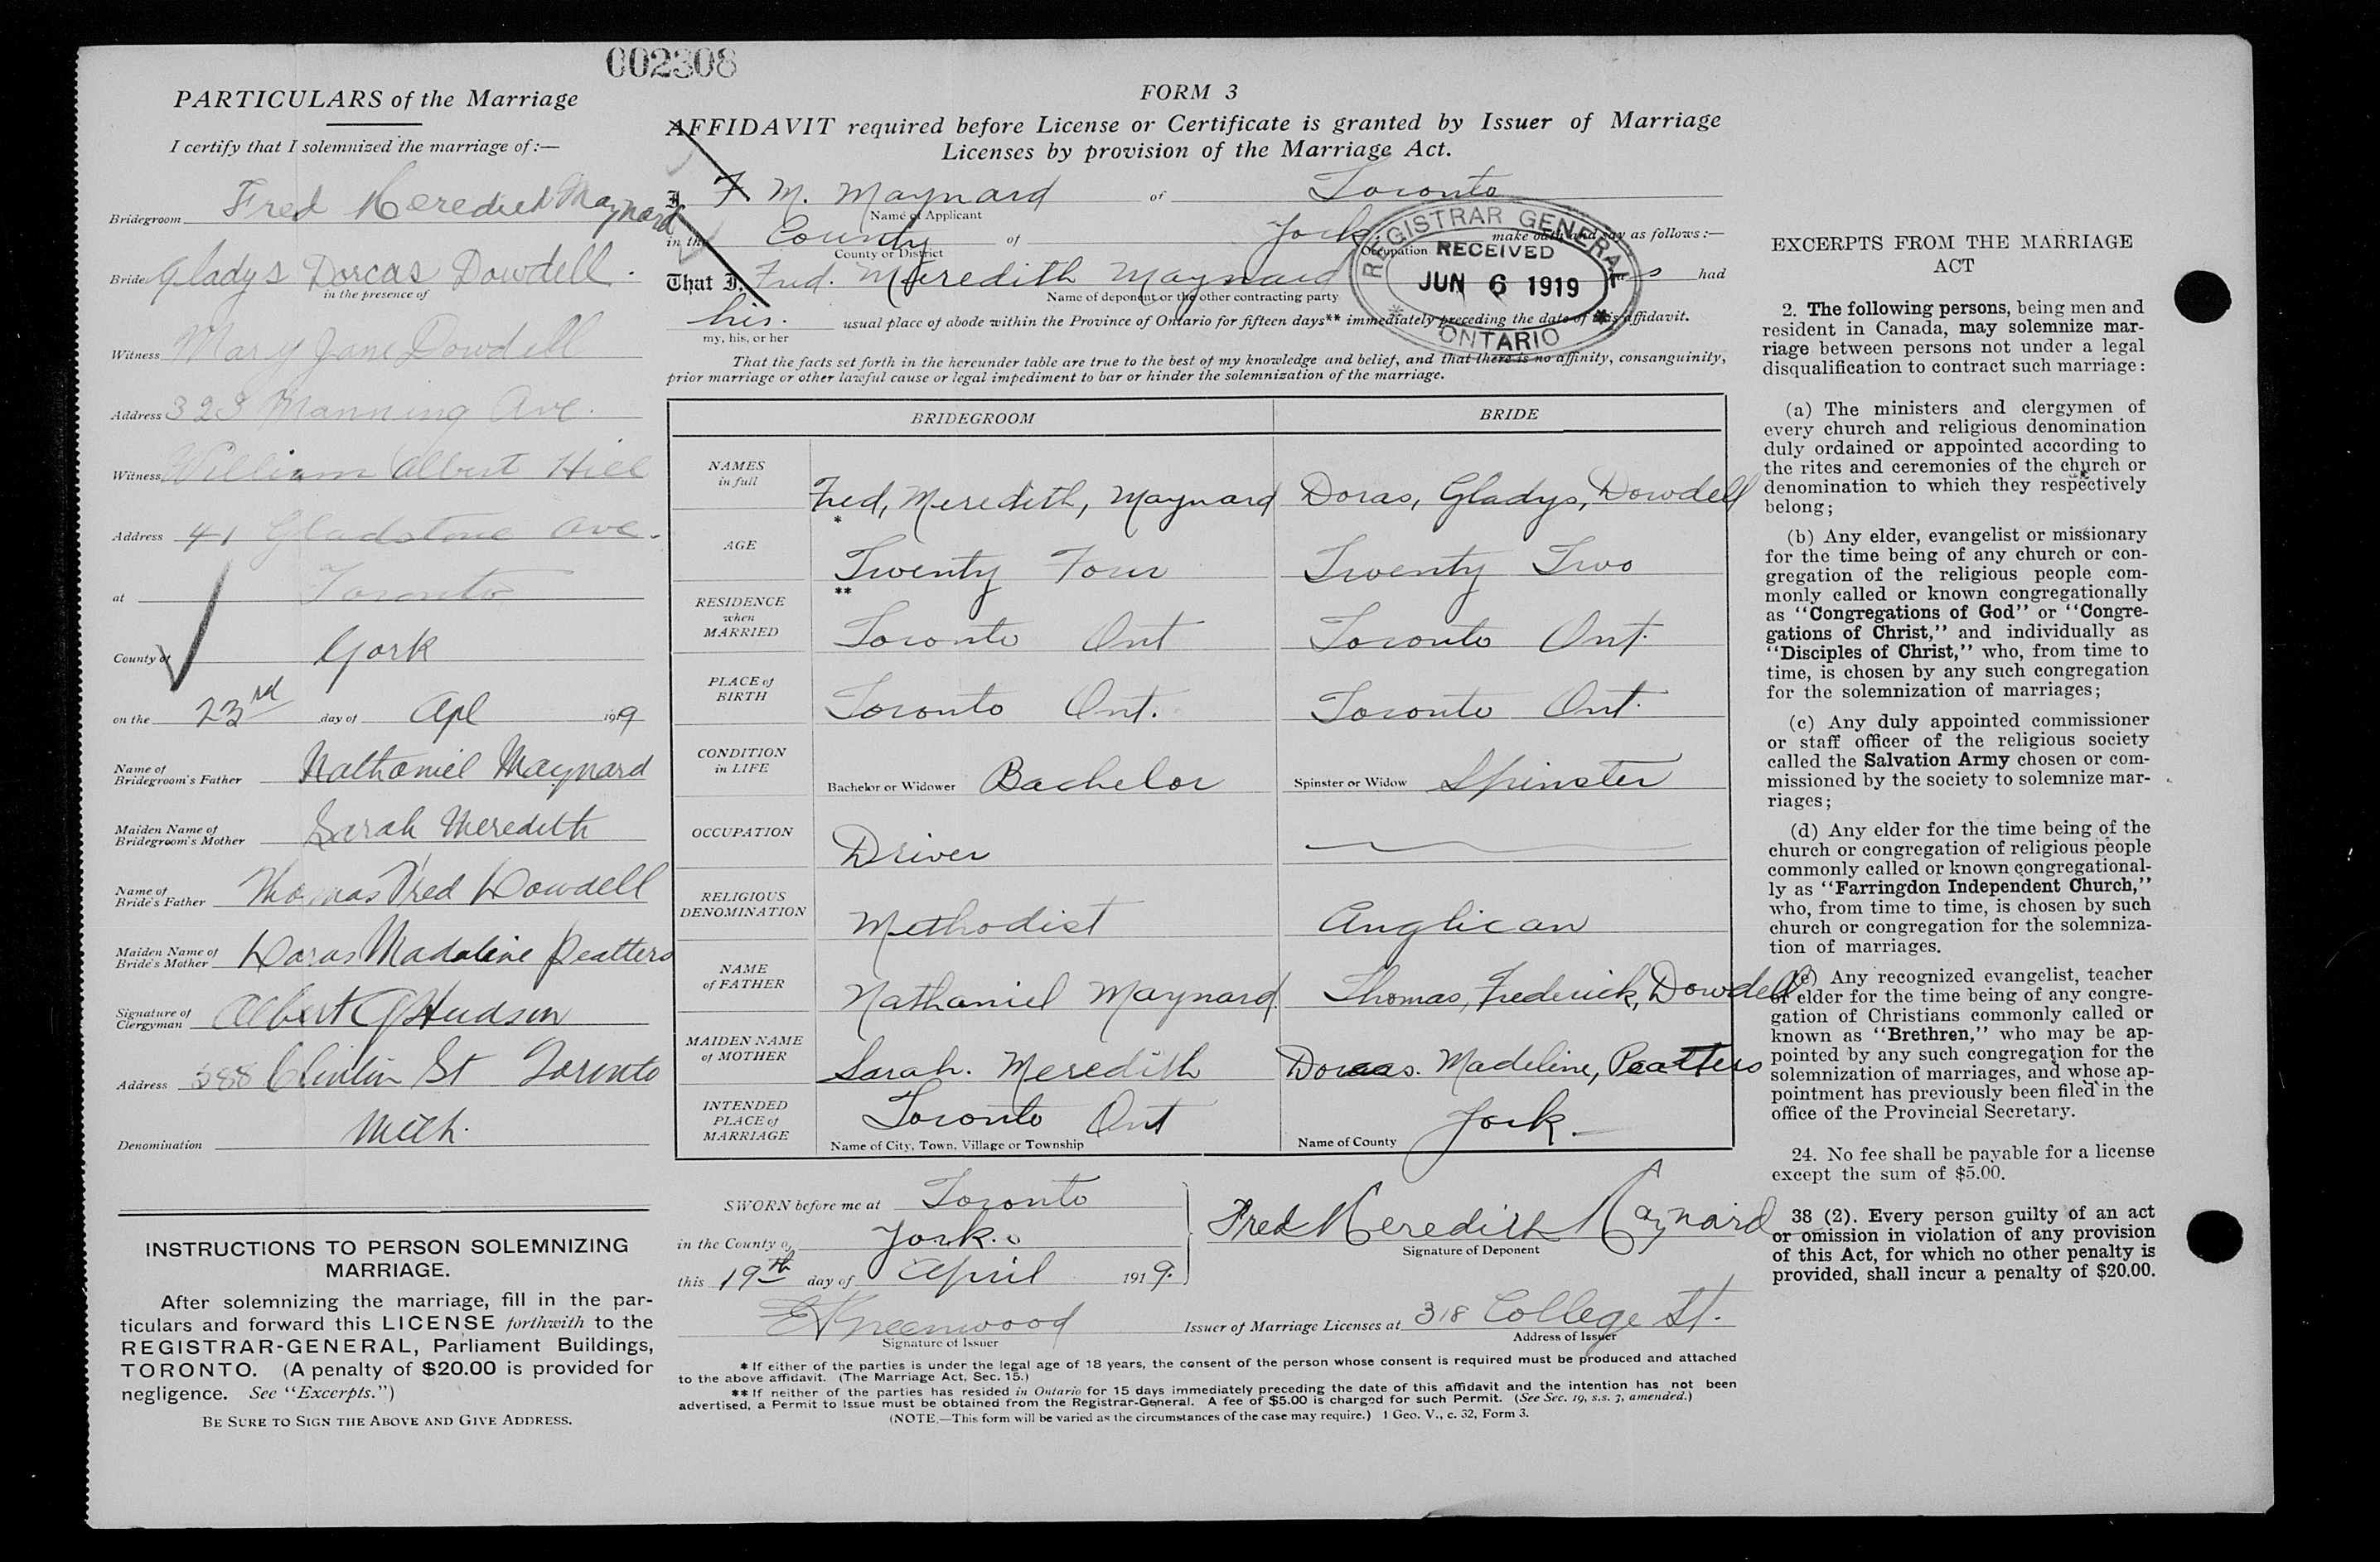 002308
PARTICULARS of the Marriage
I certify that I solemnized the marriage of:—
Bridegroom Fred Meredith Maynard
Bride Gladys Dorcas Dowdell.
in the presence of
Witness Mary Jane Dowdell
Address Manning Ave.
Witness William Albert Hill
Address 41 Gladstone Ave.
at Toronto
County of York
on the 23rd day of Apl 1919
Name of Bridegroom's Father Nathaniel Maynard
Maiden Name of Bridegroom's Mother Sarah Meredith
Name of Bride's Father Thomas Fred Dowdell
Maiden Name of Bride's Mother Doras Madaline Peatters
Signature of Clergyman Albert Hudson
Address Clinton St Toronto
Denomination Meth.
INSTRUCTIONS TO PERSON SOLEMNIZING
MARRIAGE.
After solemnizing the marriage, fill in the par-
ticulars and forward this LICENSE forthwith to the
REGISTRAR-GENERAL, Parliament Buildings,
TORONTO. (A penalty of $20.00 is provided for
negligence. See "Excerpts.")
BE SURE TO SIGN THE ABOVE AND GIVE ADDRESS.
FORM 3
AFFIDAVIT required before License or Certificate is granted by Issuer of Marriage
Licenses by provision of the Marriage Act.
I, F M. Maynard of Toronto
Name of Applicant
in the County of York make oath and say as follows:—
County or District Occupation
That I, Fred. Meredith Maynard had
Name of deponent or the other contracting party
his. usual place of abode within the Province of Ontario for fifteen days** immediately preceding the date of this affidavit.
my, his, or her
REGISTRAR GENERAL
RECEIVED
JUN 6 1919
* ONTARIO *
That the facts set forth in the hereunder table are true to the best of my knowledge and belief, and that there is no affinity, consanguinity,
prior marriage or other lawful cause or legal impediment to bar or hinder the solemnization of the marriage.
BRIDEGROOM BRIDE
NAMES in full Fred, Meredith, Maynard Doras, Gladys, Dowdell
*
AGE Twenty Four Twenty Two
**
RESIDENCE when MARRIED Toronto Ont Toronto Ont.
PLACE of BIRTH Toronto Ont. Toronto Ont.
CONDITION in LIFE Bachelor or Widower Bachelor Spinster or Widow Spinster
OCCUPATION Driver
RELIGIOUS DENOMINATION Methodist Anglican
NAME of FATHER Nathaniel Maynard. Thomas, Frederick, Dowdell
MAIDEN NAME of MOTHER Sarah. Meredith Dorcas. Madeline, Peatters
INTENDED PLACE of MARRIAGE Toronto Ont York.
Name of City, Town, Village or Township Name of County
SWORN before me at Toronto
in the County of York.
this 19th day of April 1919.
Fred Meredith Maynard
Signature of Deponent
Greenwood Issuer of Marriage Licenses at 318 College St.
Signature of Issuer Address of Issuer
* If either of the parties is under the legal age of 18 years, the consent of the person whose consent is required must be produced and attached
to the above affidavit. (The Marriage Act, Sec. 15.)
** If neither of the parties has resided in Ontario for 15 days immediately preceding the date of this affidavit and the intention has not been
advertised, a Permit to Issue must be obtained from the Registrar-General. A fee of $5.00 is charged for such Permit. (See Sec. 19, s.s. 3, amended.)
(NOTE.—This form will be varied as the circumstances of the case may require.) 1 Geo. V., c. 32, Form 3.
EXCERPTS FROM THE MARRIAGE
ACT
2. The following persons, being men and
resident in Canada, may solemnize mar-
riage between persons not under a legal
disqualification to contract such marriage:
(a) The ministers and clergymen of
every church and religious denomination
duly ordained or appointed according to
the rites and ceremonies of the church or
denomination to which they respectively
belong;
(b) Any elder, evangelist or missionary
for the time being of any church or con-
gregation of the religious people com-
monly called or known congregationally
as "Congregations of God" or "Congre-
gations of Christ," and individually as
"Disciples of Christ," who, from time to
time, is chosen by any such congregation
for the solemnization of marriages;
(c) Any duly appointed commissioner
or staff officer of the religious society
called the Salvation Army chosen or com-
missioned by the society to solemnize mar-
riages;
(d) Any elder for the time being of the
church or congregation of religious people
commonly called or known congregational-
ly as "Farringdon Independent Church,"
who, from time to time, is chosen by such
church or congregation for the solemniza-
tion of marriages.
(e) Any recognized evangelist, teacher
or elder for the time being of any congre-
gation of Christians commonly called or
known as "Brethren," who may be ap-
pointed by any such congregation for the
solemnization of marriages, and whose ap-
pointment has previously been filed in the
office of the Provincial Secretary.
24. No fee shall be payable for a license
except the sum of $5.00.
38 (2). Every person guilty of an act
or omission in violation of any provision
of this Act, for which no other penalty is
provided, shall incur a penalty of $20.00.